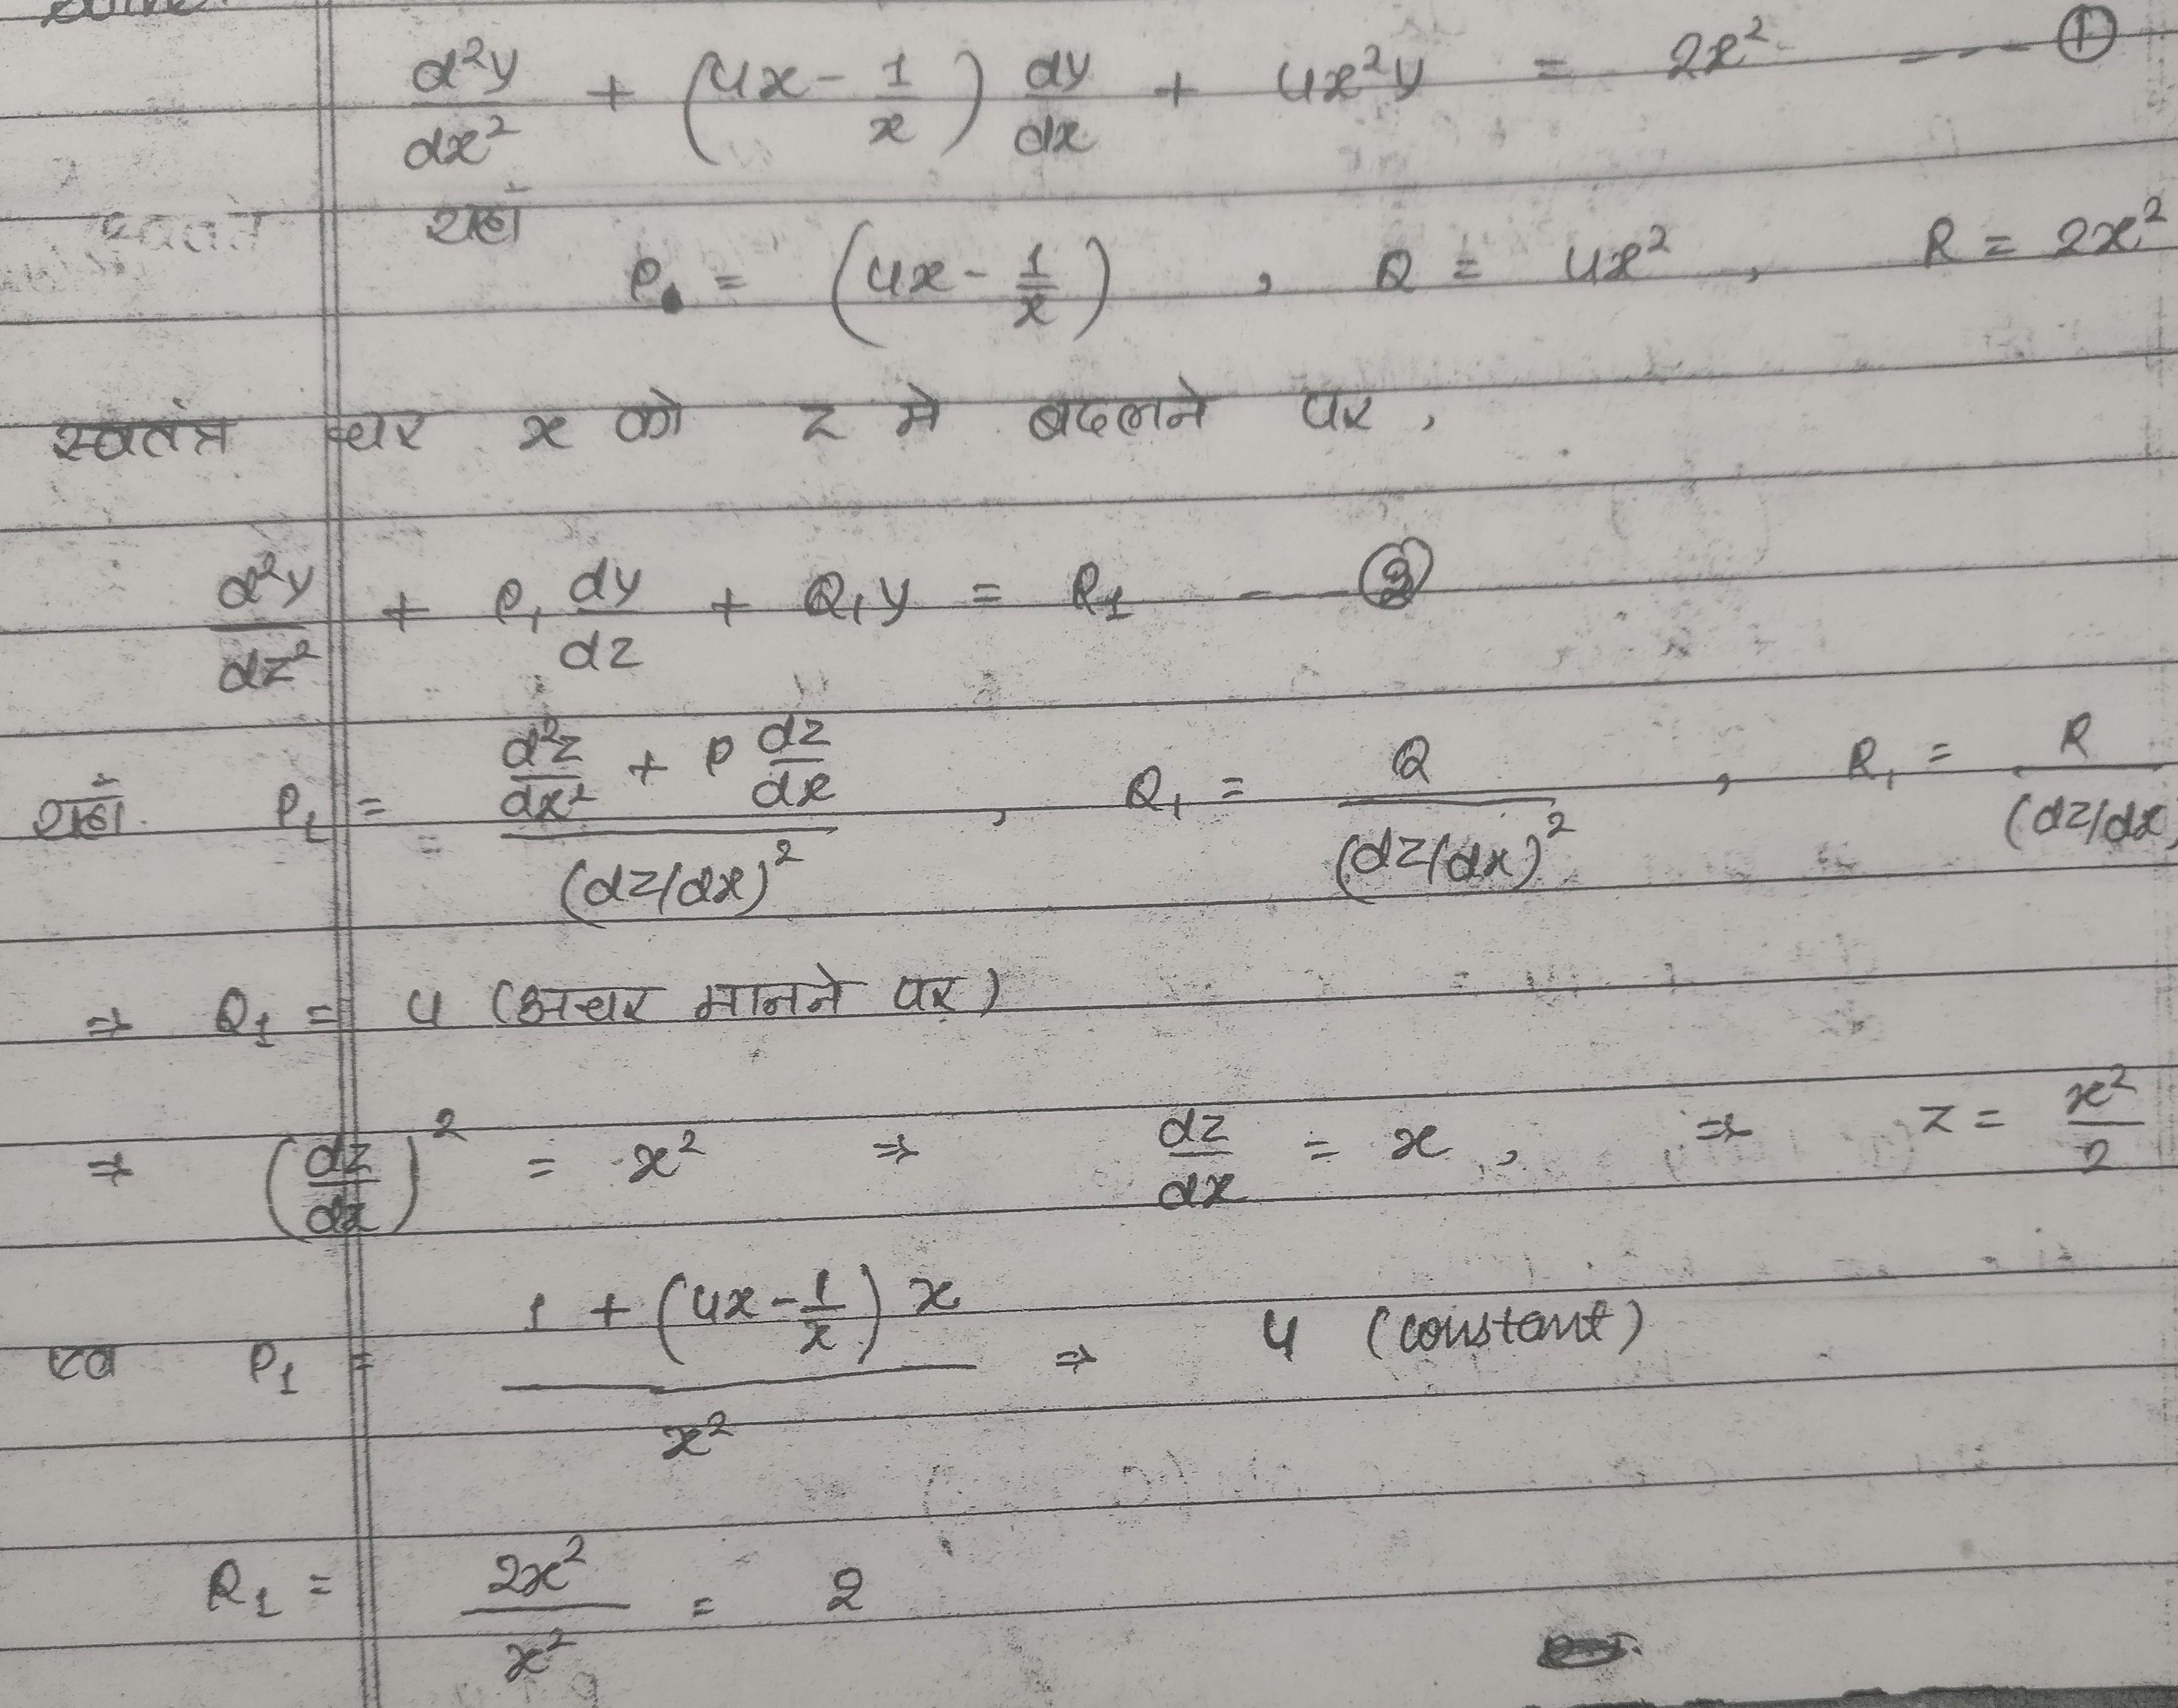 d²y/dx² + (4x - 1/x) dy/dx + 4x²y = 2x² --- ①
यहाँ
P = (4x - 1/x) , Q = 4x² , R = 2x²
स्वतंत्र चर x को z मे बदलने पर ,
d²y/dz² + P₁ dy/dz + Q₁y = R₁ --- ②
यहाँ P₁ = (d²z/dx² + P dz/dx)/(dz/dx)² , Q₁ = Q/(dz/dx)² , R₁ = R/(dz/dx
⇒ Q₁ = 4 (अचर मानने पर)
⇒ (dz/dx)² = x² ⇒ dz/dx = x , ⇒ z = x²/2
एव P₁ = (1 + (4x - 1/x) x)/x² ⇒ 4 (constant)
R₁ = 2x²/x² = 2